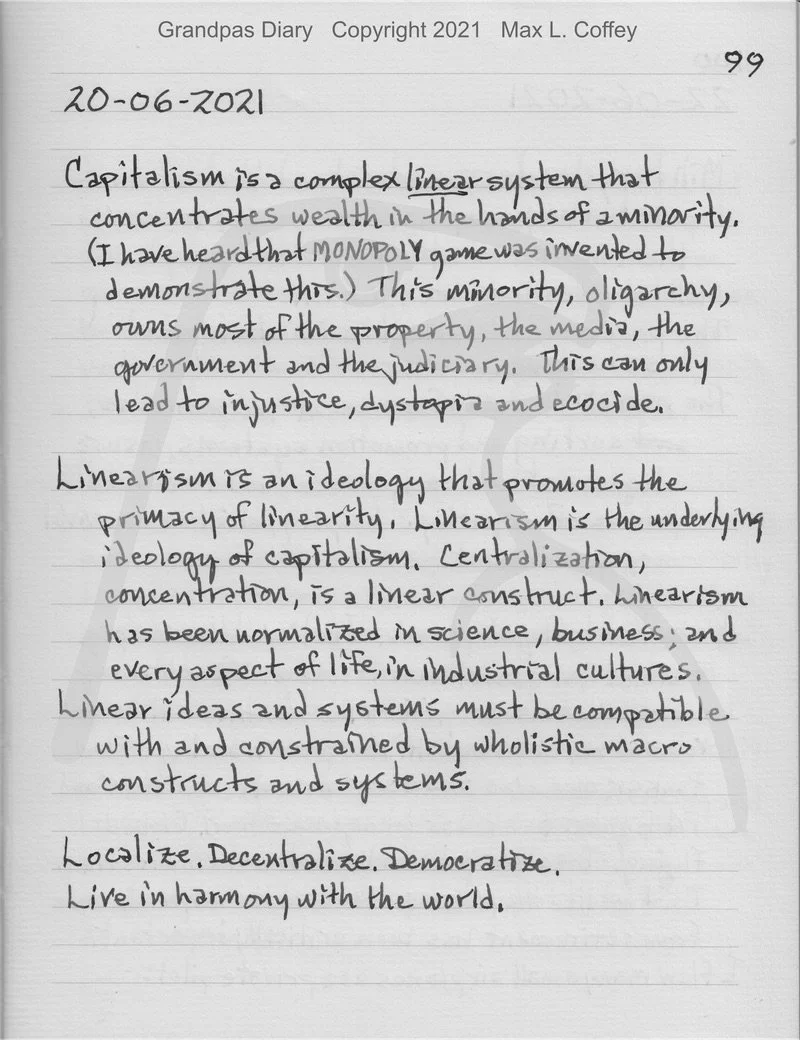 Grandpas Diary Copyright 2021 Max L. Coffey
99
20-06-2021
Capitalism is a complex linear system that
concentrates wealth in the hands of a minority.
(I have heard that MONOPOLY game was invented to
demonstrate this.) This minority, oligarchy,
owns most of the property, the media, the
government and the judiciary. This can only
lead to injustice, dystopia and ecocide.
Linearism is an ideology that promotes the
primacy of linearity. Linearism is the underlying
ideology of capitalism. Centralization,
concentration, is a linear construct. Linearism
has been normalized in science, business, and
every aspect of life, in industrial cultures.
Linear ideas and systems must be compatible
with and constrained by wholistic macro
constructs and systems.
Localize. Decentralize. Democratize.
Live in harmony with the world.